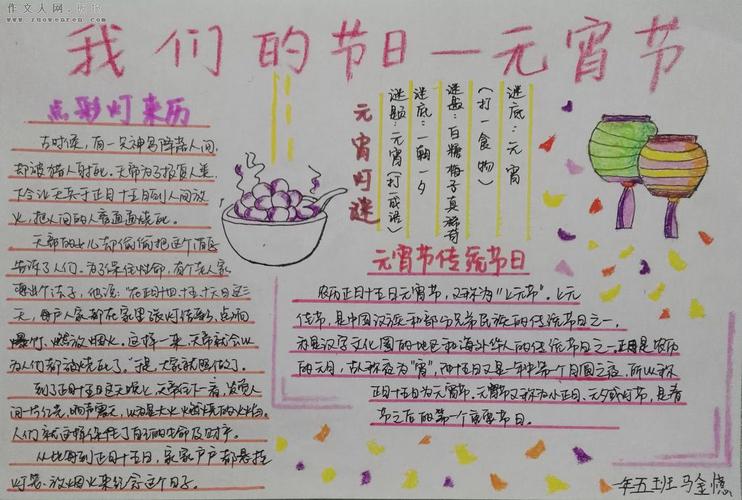 作文人网
www.zuowenren.com
我们的节日—元宵节
点彩灯来历
古时候，有一只神鸟降落人间，
却被猎人射死。天帝为了惩罚人类，
下令让天兵于正月十五日到人间放
火，把人间的人畜通通烧死。
天帝的女儿却偷偷把这个消息
告诉了人们。为了保住性命，有个老人家
想出个法子，他说：“在正月十四、十五、十六日这三
天，每户人家都在家里张灯结彩、点响
爆竹、燃放烟火。这样一来，天帝就会以
为人们都被烧死了。”于是大家就照做了。
到了正月十五日这天晚上，天帝往下一看，发觉人
间一片红亮，响声震天，以为是大火燃烧的火焰。
人们就这样保住了自己的生命及财产。
从此每到正月十五日，家家户户都悬挂
灯笼、放烟火来纪念这个日子。
元宵灯谜
谜题：元宵（打一成语）
谜底：一朝一夕
谜题：白糖梅子真稀奇
（打一食物）
谜底：元宵
元宵节传统节日
农历正月十五日元宵节，又称为“上元节”，上元
佳节，是中国汉族和部分兄弟民族的传统节日之一，
亦是汉字文化圈的地区和海外华人的传统节日之一。正月是农历
的元月，古人称夜为“宵”，而十五日又是一年中第一个月圆之夜，所以称
正月十五日为元宵节。元宵节又称为小正月、元夕或灯节，是春
节之后的第一个重要节日。
一年五班